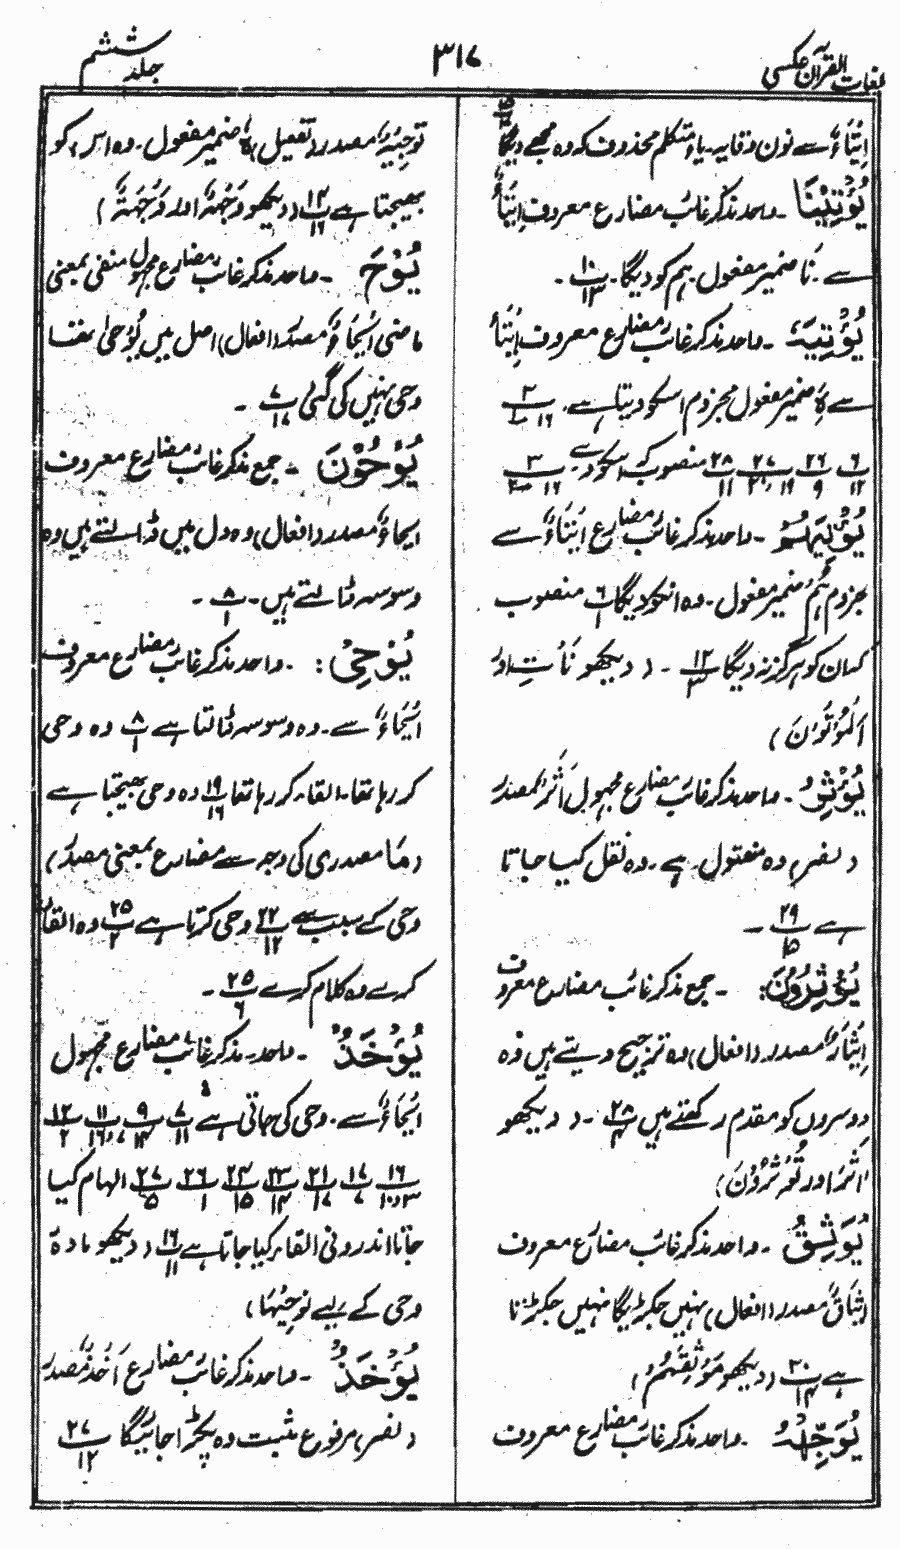 لغات القرآن عکسی
۳۱۷
جلد ششم
اِیْتَاءٌ سے نون وقایہ۔ یاء متکلم محذوف کہ وہ مجھے دیگا
یُؤْتِیْنَا ۔ واحد مذکر غائب مضارع معروف اِیْتَاءٌ
سے ۔ نَا ضمیر مفعول ۔ ہم کو دیگا ۔ ۱۰/۱۳ ۔
یُؤْتِیْہِ ۔ واحد مذکر غائب مضارع معروف اِیْتَاءٌ
سے ہٖ ضمیر مفعول مجزوم اسکو دیتا ہے ۔ ۳/۱۶
۶/۱۲ ۲۶/۹ ۲۷/۱۹ ۲۸/۱۱ منصوب کہ اسکو دے ۔ ۳/۱۶
یُؤْتِیَہُمْ ۔ واحد مذکر غائب مضارع اِیْتَاءٌ سے
ہُمْ ضمیر مفعول ۔ وہ انکو دیگا ۶/۱ منصوب
کہ ان کو ہرگز نہ دیگا ۱۲/۳ ۔ ( دیکھو نَأْتِ اور
اَلْمُؤْتُوْنَ )
یُؤْثَرُ ۔ واحد مذکر غائب مضارع مجہول اَثْرٌ مصدر
( نصر ) وہ منقول ہے ۔ وہ نقل کیا جاتا
ہے ۲۹/۱۵ ۔
یُؤْثِرُوْنَ : ۔ جمع مذکر غائب مضارع معروف
اِیْثَارٌ مصدر ( افعال ) وہ ترجیح دیتے ہیں وہ
دوسروں کو مقدم رکھتے ہیں ۲۸/۴ ۔ ( دیکھو
اثر اور تُؤْثِرُوْنَ )
یُوْثِقُ ۔ واحد مذکر غائب مضارع معروف
اِیْثَاقٌ مصدر ( افعال ) نہیں جکڑیگا نہیں جکڑتا
ہے ۳۰/۱۴ ( دیکھو مَوْثِقَہُمْ )
یُوَجِّہْہُ ۔ واحد مذکر غائب مضارع معروف
تَوْجِیْہٌ مصدر ( تفعیل ) ہُ ضمیر مفعول ۔ وہ اس کو
بھیجتا ہے ۱۴/۱۶ ( دیکھو وَجْہَہٗ اور وِجْہَۃٌ )
یُوْحَ ۔ واحد مذکر غائب مضارع مجہول منفی بمعنی
ماضی اِیْحَاءٌ مصدر ( افعال ) اصل میں یُوْحٰی تھا
وحی نہیں کی گئی ۷/۱۷ ۔
یُوْحُوْنَ ۔ جمع مذکر غائب مضارع معروف
ایحاءٌ مصدر ( افعال ) وہ دل میں ڈالتے ہیں وہ
وسوسہ ڈالتے ہیں ۔ ۸/۱ ۔
یُوْحِیْ : ۔ واحد مذکر غائب مضارع معروف
اِیْحَاءٌ سے ۔ وہ وسوسہ ڈالتا ہے ۸/۱ وہ وحی
کر رہا تھا ۔ القاء کر رہا تھا ۱۹/۱۶ وہ وحی بھیجتا ہے
( مَا مصدری کی وجہ سے مضارع بمعنی مصدر )
وحی کے سبب سے ۲۲/۱۲ وحی کرتا ہے ۲۵/۲ وہ القاء
کرے وہ کلام کرے ۲۵/۶ ۔
یُؤْخَذُ ۔ واحد ۔ مذکر غائب مضارع مجہول
اِیْحَاءٌ سے ۔ وحی کی جاتی ہے ۷/۱۱ ۹/۱۴ ۱۱/۱۶،۲ ۱۲/۲
۱۶/۳،۱۰ ۱۷/۷ ۲۱/۱۷ ۲۳/۱۴ ۲۴/۱۵ ۲۶/۱ ۲۷/۵ الہام کیا
جاتا اندرونی القاء کیا جاتا ہے ۱۶/۱۱ ( دیکھو مادہ
وحی کے لیے نُوْحِیْہَا )
یُؤْخَذُ ۔ واحد مذکر غائب مضارع اَخْذٌ مصدر
( نصر ) مرفوع مثبت وہ پکڑا جائیگا ۲۷/۱۲